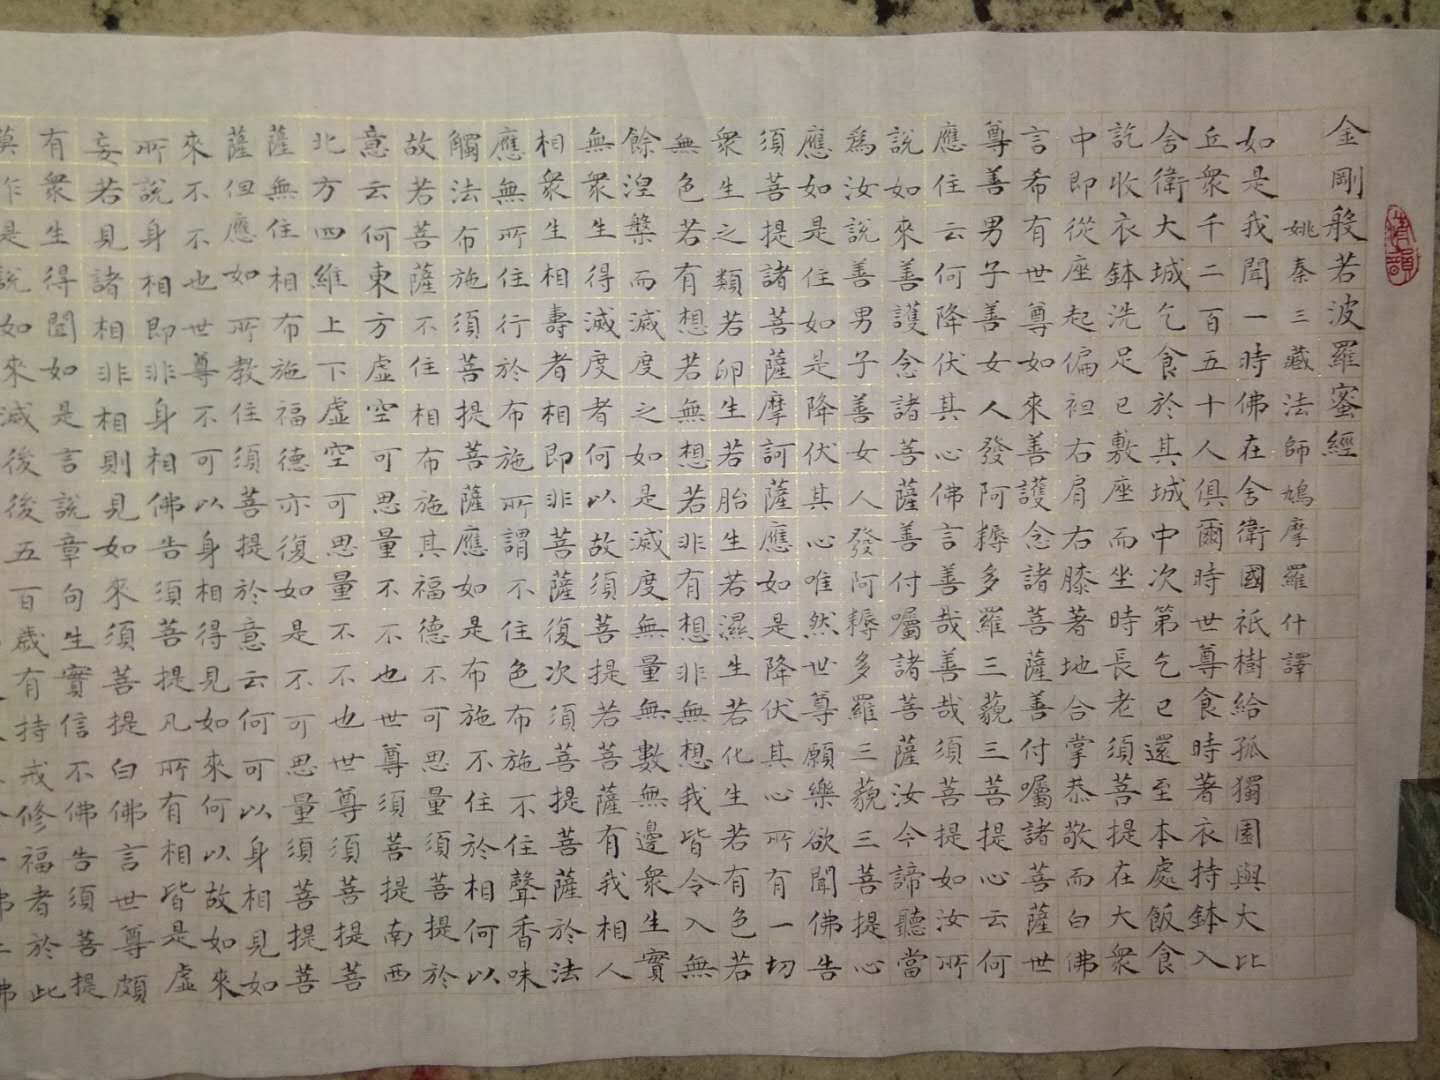 金剛般若波羅蜜經
姚秦三藏法師鳩摩羅什譯
如是我聞一時佛在舍衛國祇樹給孤獨園與大比
丘衆千二百五十人俱爾時世尊食時著衣持鉢入
舍衛大城乞食於其城中次第乞已還至本處飯食
訖收衣鉢洗足已敷座而坐時長老須菩提在大衆
中即從座起偏袒右肩右膝著地合掌恭敬而白佛
言希有世尊如來善護念諸菩薩善付囑諸菩薩世
尊善男子善女人發阿耨多羅三藐三菩提心云何
應住云何降伏其心佛言善哉善哉須菩提如汝所
說如來善護念諸菩薩善付囑諸菩薩汝今諦聽當
為汝說善男子善女人發阿耨多羅三藐三菩提心
應如是住如是降伏其心唯然世尊願樂欲聞佛告
須菩提諸菩薩摩訶薩應如是降伏其心所有一切
衆生之類若卵生若胎生若濕生若化生若有色若
無色若有想若無想若非有想非無想我皆令入無
餘涅槃而滅度之如是滅度無量無數無邊衆生實
無衆生得滅度者何以故須菩提若菩薩有我相人
相衆生相壽者相即非菩薩復次須菩提菩薩於法
應無所住行於布施所謂不住色布施不住聲香味
觸法布施須菩提菩薩應如是布施不住於相何以
故若菩薩不住相布施其福德不可思量須菩提於
意云何東方虛空可思量不不也世尊須菩提南西
北方四維上下虛空可思量不不也世尊須菩提菩
薩無住相布施福德亦復如是不可思量須菩提菩
薩但應如所教住須菩提於意云何可以身相見如
來不不也世尊不可以身相得見如來何以故如來
所說身相即非身相佛告須菩提凡所有相皆是虛
妄若見諸相非相則見如來須菩提白佛言世尊頗
有衆生得聞如是言說章句生實信不佛告須菩提
莫作是說如來滅後後五百歲有持戒修福者於此